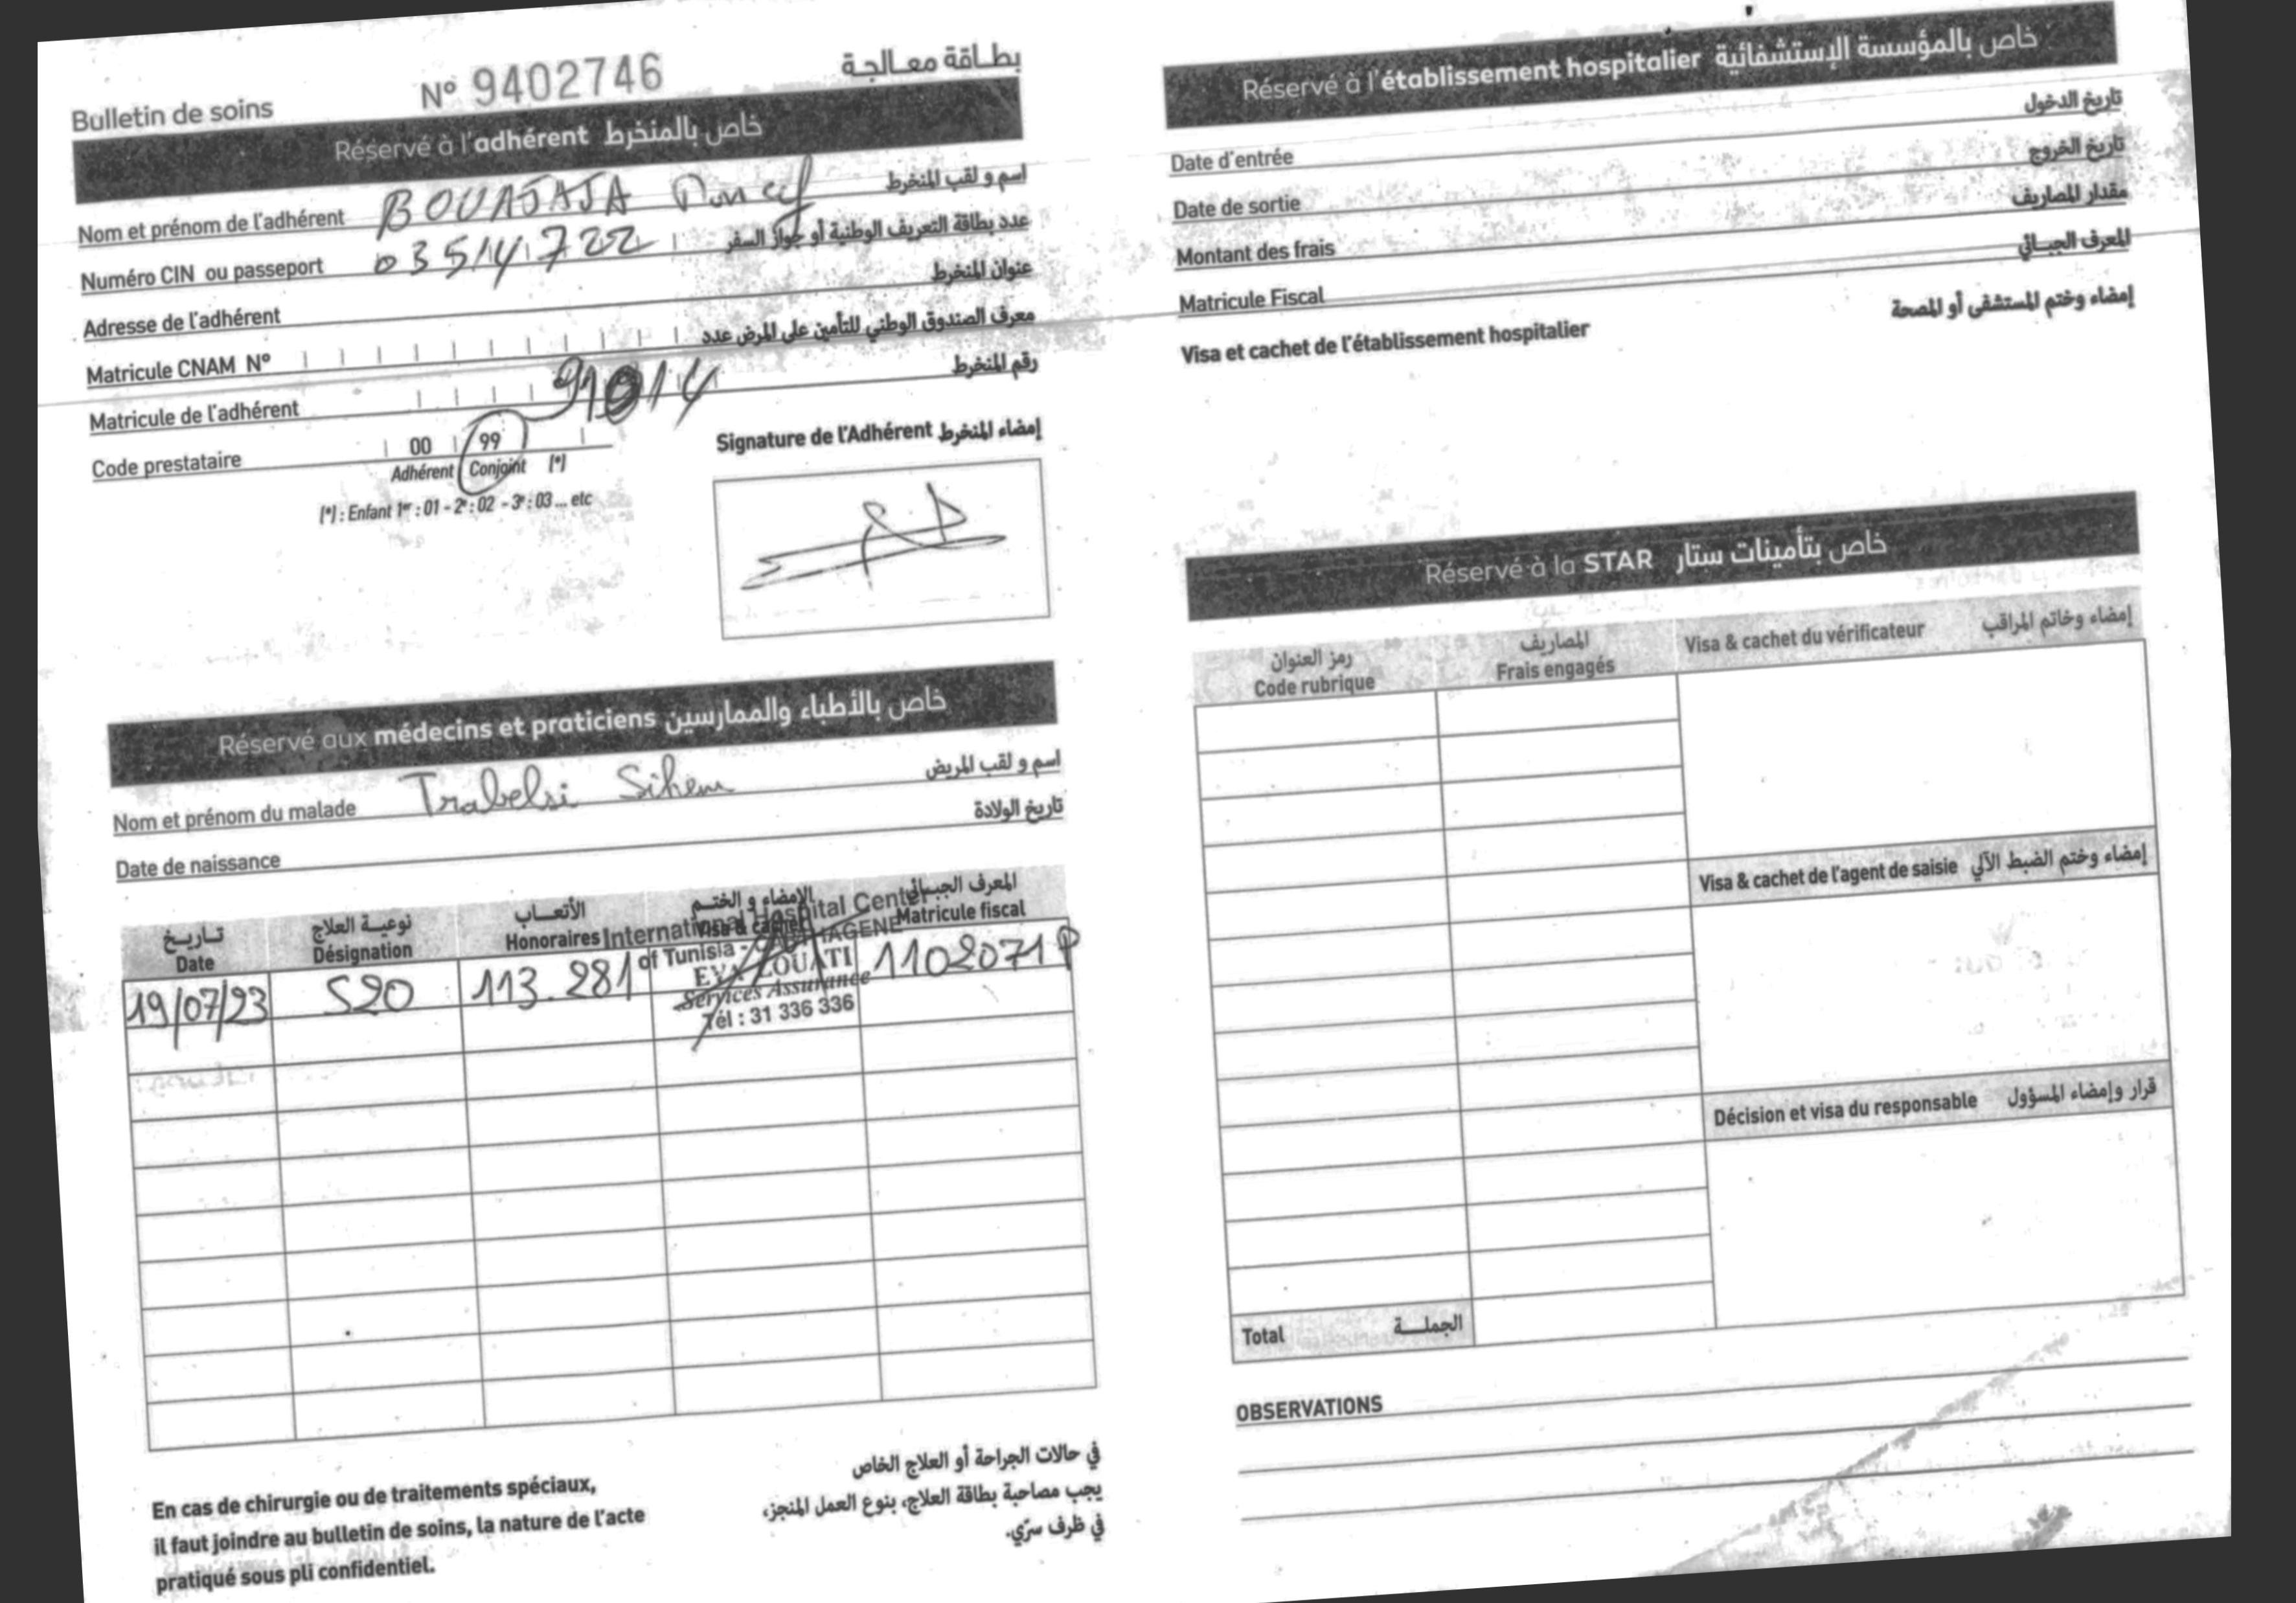 Bulletin de soins N° 9402746 بطاقة معالجة
Réservé à l'adhérent خاص بالمنخرط
Nom et prénom de l'adhérent BOUAJAJA Moncef اسم و لقب المنخرط
Numéro CIN ou passeport 03514722 عدد بطاقة التعريف الوطنية أو جواز السفر
Adresse de l'adhérent عنوان المنخرط
Matricule CNAM N° معرف الصندوق الوطني للتأمين على المرض عدد
Matricule de l'adhérent 91014 رقم المنخرط
Code prestataire 00 99
Adhérent Conjoint (*)
(*) : Enfant 1er : 01 - 2e : 02 - 3e : 03 ... etc
Signature de l'Adhérent إمضاء المنخرط
Réservé aux médecins et praticiens خاص بالأطباء والممارسين
Nom et prénom du malade Trabelsi Sihem اسم و لقب المريض
Date de naissance تاريخ الولادة
تاريخ نوعية العلاج الأتعاب الإمضاء و الختم المعرف الجبائي
Date Désignation Honoraires Visa & cachet Matricule fiscal
19/07/23 S20 113.281 1102071P
International Hospital Center
of Tunisia - CARTHAGENE
EVA LOUATI
Services Assurance
Tél : 31 336 336
En cas de chirurgie ou de traitements spéciaux,
il faut joindre au bulletin de soins, la nature de l'acte
pratiqué sous pli confidentiel.
في حالات الجراحة أو العلاج الخاص
يجب مصاحبة بطاقة العلاج، بنوع العمل المنجز،
في ظرف سرّي.
Réservé à l'établissement hospitalier خاص بالمؤسسة الإستشفائية
Date d'entrée تاريخ الدخول
Date de sortie تاريخ الخروج
Montant des frais مقدار المصاريف
Matricule Fiscal المعرف الجبائي
Visa et cachet de l'établissement hospitalier إمضاء وختم المستشفى أو المصحة
Réservé à la STAR خاص بتأمينات ستار
رمز العنوان المصاريف
Code rubrique Frais engagés
Visa & cachet du vérificateur إمضاء وخاتم المراقب
Visa & cachet de l'agent de saisie إمضاء وختم الضبط الآلي
Décision et visa du responsable قرار وإمضاء المسؤول
Total الجملة
OBSERVATIONS